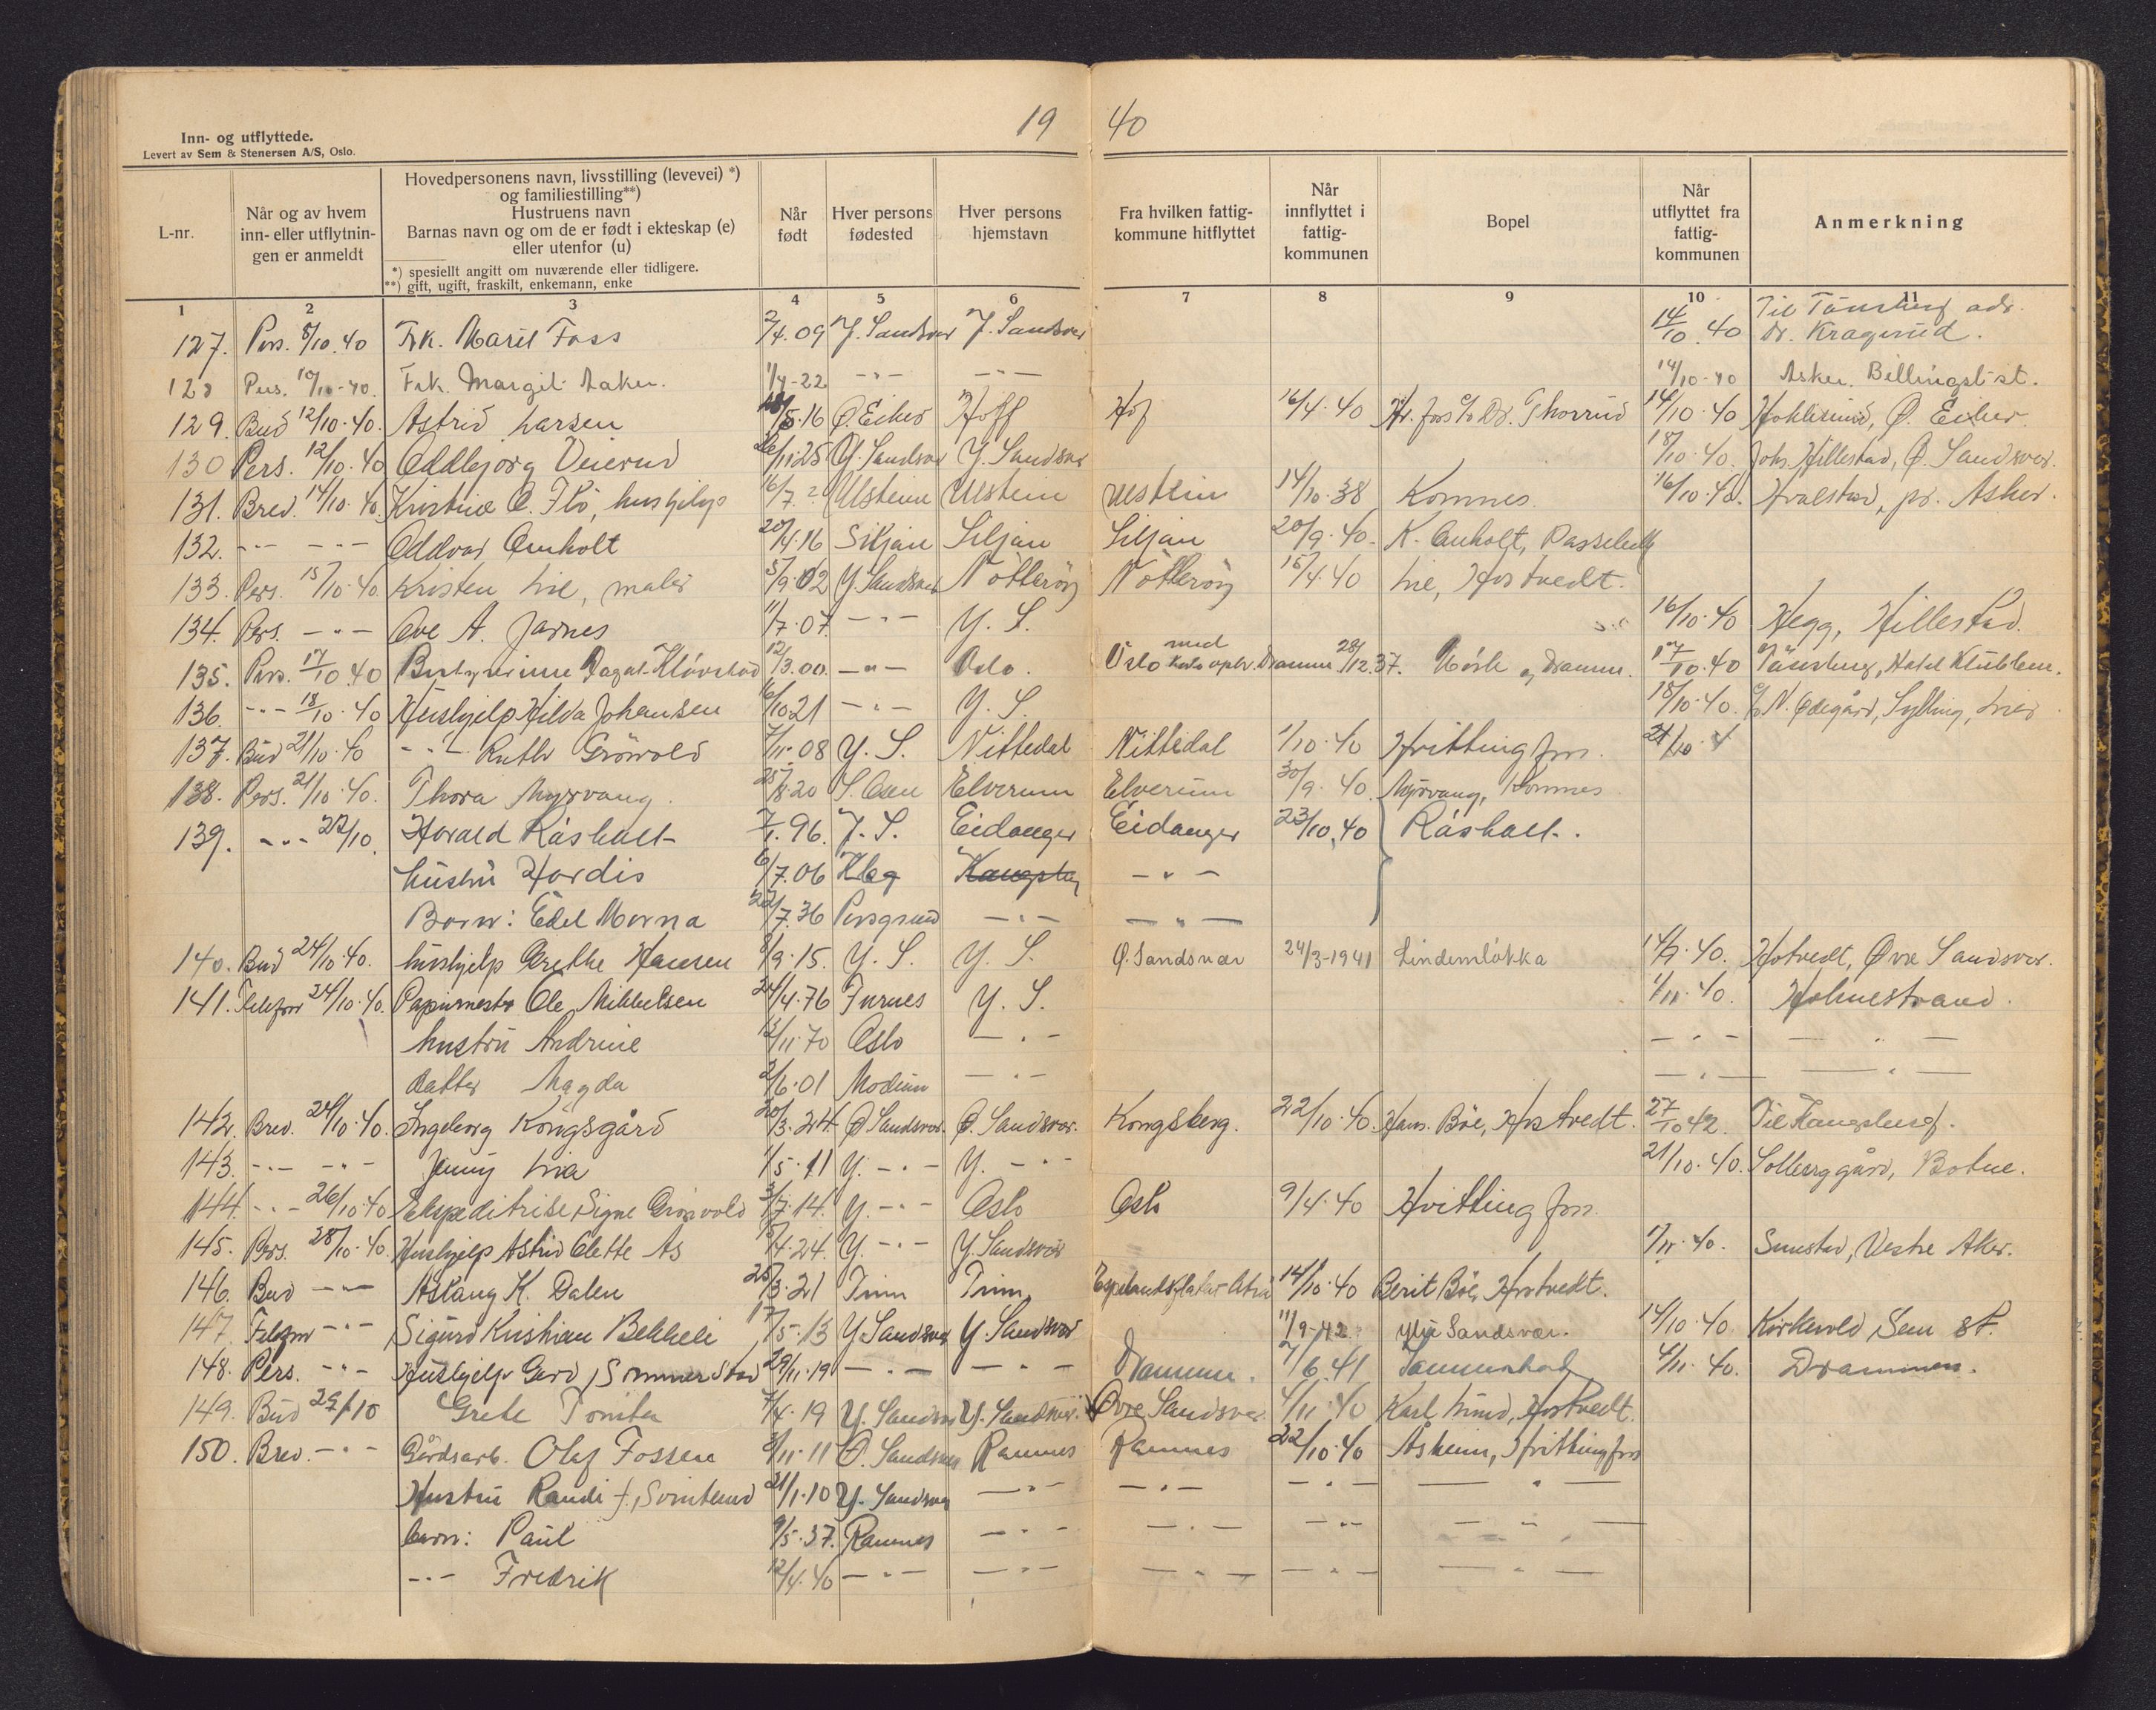 19 40
Inn- og utflyttede.
Levert av Sem & Stenersen A/S, Oslo.
L-nr.
Når og av hvem inn- eller utflytnin- gen er anmeldt
Hovedpersonens navn, livsstilling (levevei) *)
og familiestilling**)
Hustruens navn
Barnas navn og om de er født i ekteskap (e)
eller utenfor (u)
*) spesiellt angitt om nuværende eller tidligere.
**) gift, ugift, fraskilt, enkemann, enke
Når født
Hver persons fødested
Hver persons hjemstavn
Fra hvilken fattig- kommune hitflyttet
Når innflyttet i fattig- kommunen
Bopel
Når utflyttet fra fattig- kommunen
Anmerkning
1 2 3 4 5 6 7 8 9 10 11
127. Pers. 8/10.40 Frk. Marit Foss 2/4.09 Y. Sandsvær Y. Sandsvær 14/10.40 Til Tønsberg adr. Dr. Kragerud.
128 Pers. 10/10-40. Frk. Margit Aaker. 1/4-22 -"- -"- 14/10-40 Asker. Billingst st.
129. Bud 12/10.40. Astrid Larsen 5.16 Ø. Eiker Hoff Hof 16/4.40 Hv. foss c/o Dr. Thorrud 14/10.40 Hokksund, Ø. Eiker.
130 Pers. 12/10.40 Oddbjørg Veierud 26/11.25 Y. Sandsvær Y. Sandsvær 18/10.40. Joh. Hillestad, Ø. Sandsvær.
131. Brev. 14/10.40. Kristine O. Flø, hushjelp 16/7.? Ulstein Ulstein Ulstein 14/10.38 Komnes. 16/10.40. Hvalstad, pr. Asker.
132. -"- -"- Oddvar Omholt 20/4.16 Siljan Siljan Siljan 20/9.40. K. Omholt, Passebekk
133. Pers. 15/10.40. Kristen Lie, maler 5/9.02 Y. Sandsvær Nøtterøy Nøtterøy 15/4.40 Lie, Hostvedt.
134. Pers. -"- Ove A. Jarnes 11/7.07. -"- Y. S. 16/10.40 Hegg, Hillestad.
135. Pers. 17/10.40 Bestyrerinne Dagat Kløvstad 12/3.00. -"- Oslo. Oslo med opbr. Drammen 28/12.37. og Drammen. 17/10.40 Tønsberg, Hotel Klubben.
136. -"- 18/10.40 Hushjelp Hilda Johansen 16/10.21 -"- Y. S. 18/10.40. c/o N. Ødegård, Sylling, Lier
137. Bud 21/10.40 -"- Ruth Grønvold 7/11.08 Y. S. Nittedal Nittedal 1/10.40 Hvittingfoss. 21/10.4
138. Pers. 21/10.40. Thora Myrvang. 25/8.20 S. Osen Elverum Elverum 30/9.40. Myrvang, Komnes
139. -"- 22/10. Harald Råsholt 7/1.96. Y. S. Eidanger Eidanger 23/10.40 Råsholt.
hustru Hordis 6/7.06 Kbg Kongsberg -"-
Barn: Edel Morna 22/7.36 Porsgrund -"- -"-
140. Bud 24/10.40. hushjelp Grethe Hansen 8/9.15. Y. S. Y. S. Ø. Sandsvær 24/3-1941 Lindemløkka 14/9.40. Hotvedt, Øvre Sandsvær.
141. Telefon 24/10.40. Papirmester Ole Mikkelsen 24/4.76 Furnes Y. S. 1/11.40. Holmestrand.
hustru Andrine 13/11.70 Oslo -"- -"- -"-
datter Magda 2/6.01 Modum -"- -"- -"-
142. Brev. 24/10.40. Ingeborg Kongsgård 20/3.24 Ø Sandsvær. Ø. Sandsvær. Kongsberg. 22/10.40. Hans. Bøe, Hostvedt. 27/10 42. Til Kongsberg.
143. -"- -"- Jenny Lia 1/5.11 Y. -"- Y. -"- 21/10.40. Solberggård, Botne.
144. -"- 26/10.40 Ekspeditrise Signe Grønvold 3/7.14. Y. -"- Oslo Oslo 9/4.40 Hvittingfoss.
145. Pers. 28/10.40. Hushjelp Astrid Olette Ås 4.24. Y. -"- Y. Sandsvær 1/11.40. Smestad, Vestre Aker.
146. Bud -"- Aslaug K. Dalen 25/3.21 Tinn Tinn Atrå 14/10.40 Berit Bøe, Hostvedt.
147. Telefon -"- Sigurd Kristian Bekkeli 17/5.13 Y Sandsvær Y Sandsvær 11/9-42 Ytre Sandsvær. 14/10.40 Kirkevold, Sem st.
148. Pers. -"- Hushjelp Gerd Sommerstad 29/11.19 -"- -"- Drammen. 7/6.41 4/11.40. Drammen.
149. Bud 29/10 Grete Tomter 7/4.19 Y. Sandsvær Y. Sandsvær. Øvre Sandsvær 4/11.40 Karl Lund, Hostvedt.
150. Brev. -"- Gårdsarb. Olaf Fossen 3/11.11 Ø. Sandsvær Ramnes Ramnes 22/10.40 Åsheim, Hvittingfoss
Hustru Randi f. Svinterud 21/1.10 Y. Sandsvær -"- -"- -"- -"-
barn: Paul 9/5.37. Ramnes -"- -"- -"- -"-
-"- Fredrik 12/4.40 -"- -"- -"- -"- -"-